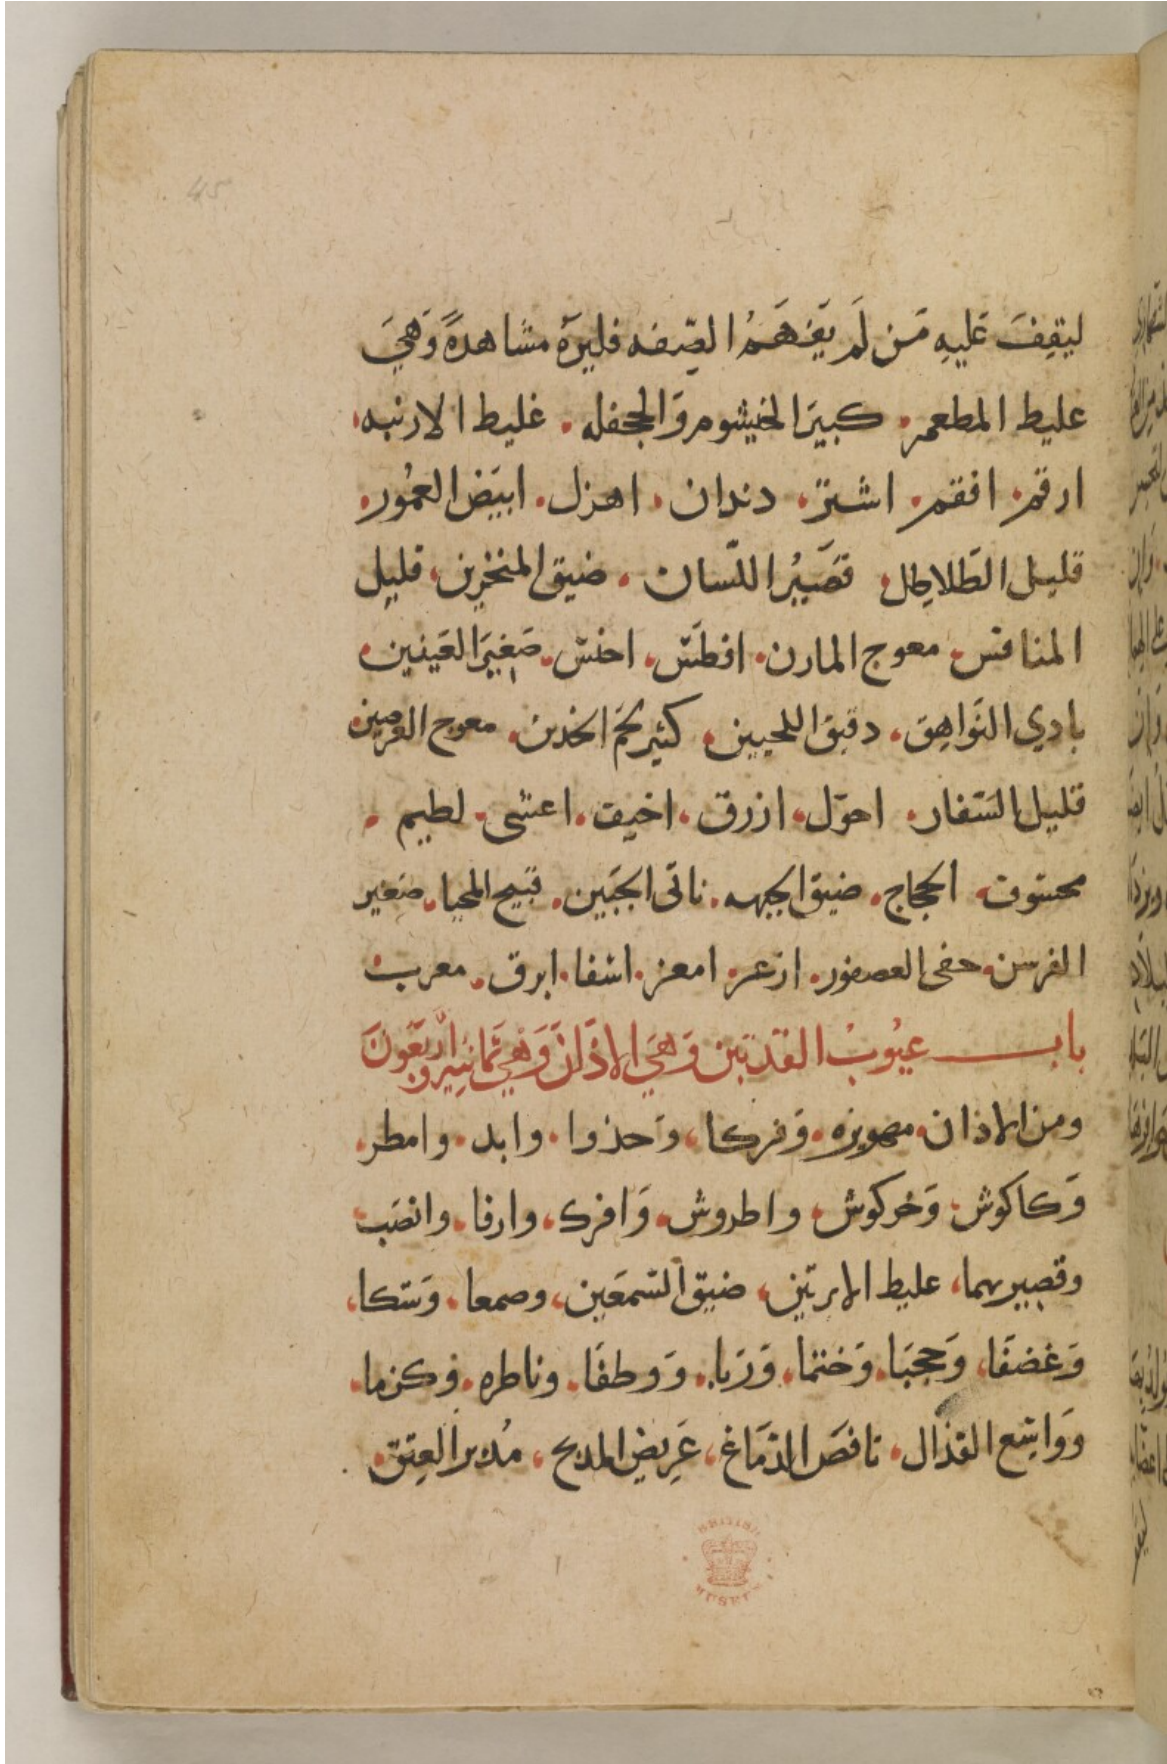 ليقِفَ عَليهِ مَن لَم يَفهَمُ الصِّفه فليرَهُ مشاهدةً وَهيَ
غليط المطعم كبيرَ الخيشوم وَالجحفله غليط الارنبه
ارقم افقم اشتر دندان اهزل ابيَض العمُور
قليل الطَلاطِل قصَيُر اللّسان ضيق المنخرين قليل
المنافس معوج المارن افطَسَ اخنس صَغيَر العَينين
بادي النَواهِق دقيَق اللحيين كثير لحَم الخدين معوج
قليل الشفار احوَل ازرق اخيف اعشى لطيم
الحجاج ضيق الجبهه ناتى الجَبَين قبيح المحيا صَغير
الفرسن حفى العصفور ازعر امعز اشفا ابرق معرب
باب عيُوبُ وَهيَ الاذَانَ وَهيَ ثمَانيِه وارَبعَونَ
ومن الاذان وَفركا وَحذوا وابد وامطر
وَكاكوش وَخركوش واطروش وَافرك وارفا وانصَب
وقصيرهما غليط ضيق السَمعَين وصمعا وَسَكا
وَغضفَا وَحجبَا وَختما وَزبا وَوطفَا وناطره وكزما
وَوَاسِع القذال ناقصَ الدمَاغ عَرِيض مُدبر العِتق
45
BRITISH MUSEUM